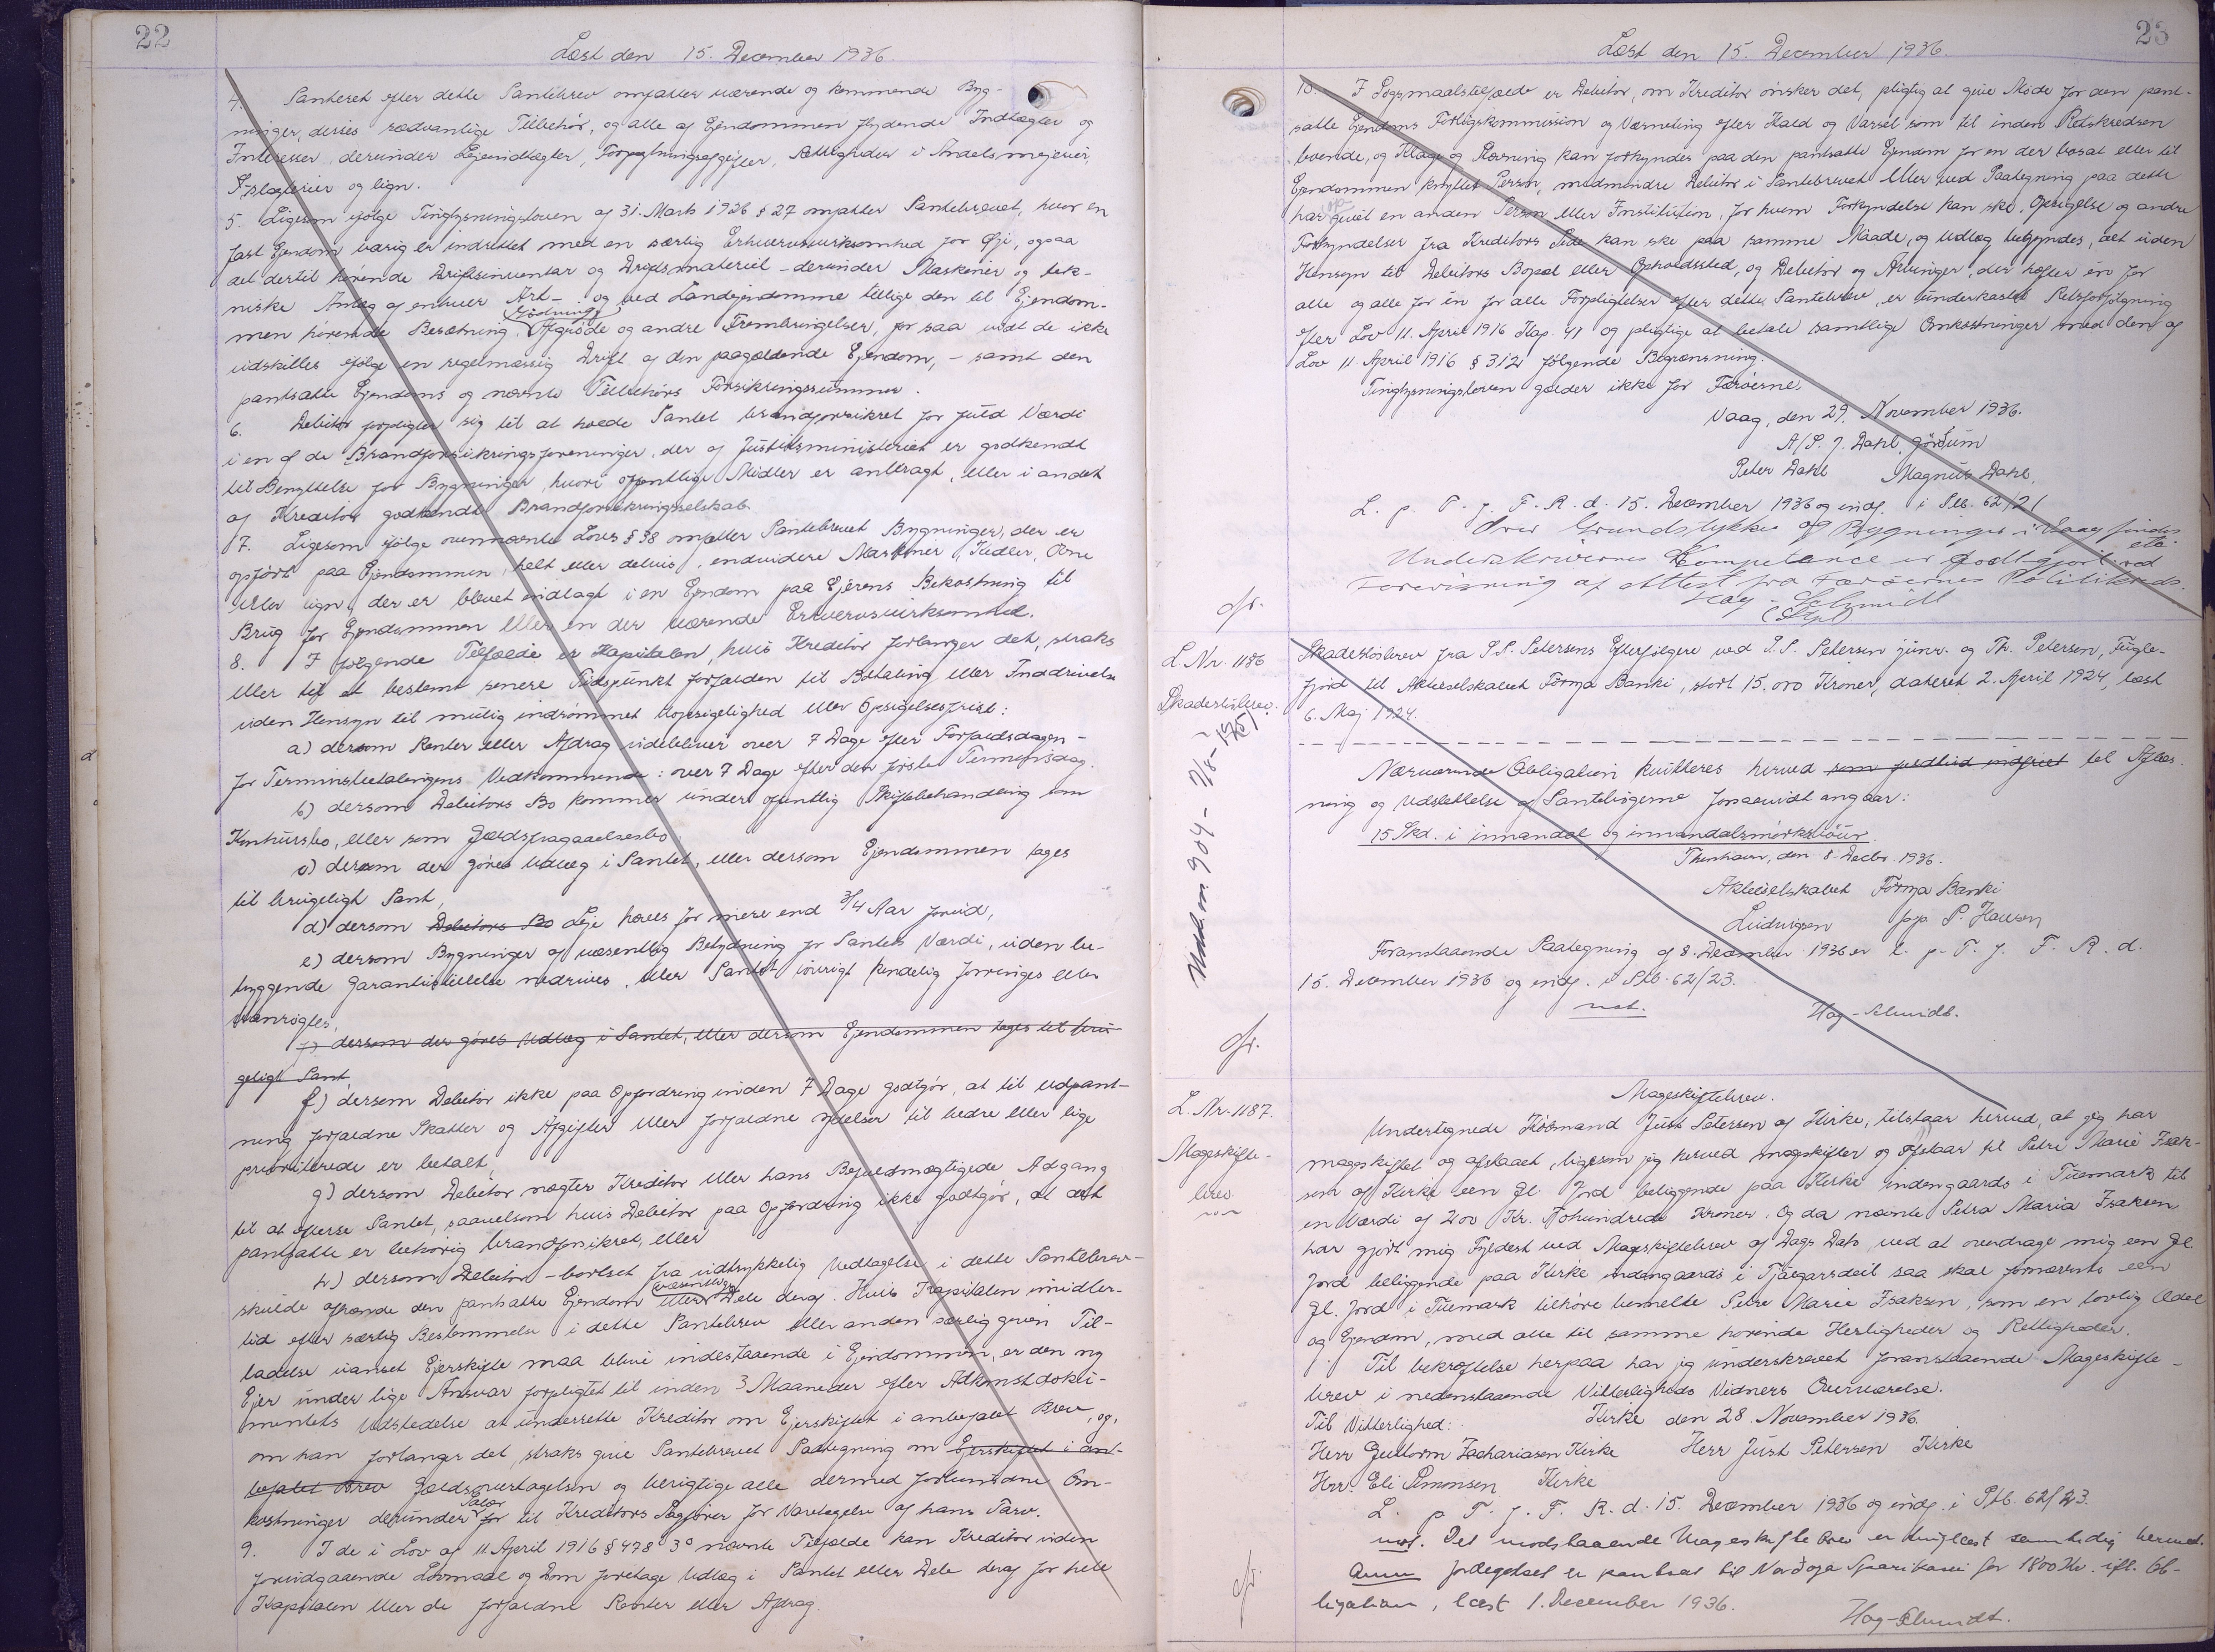 22
Læst den 15. December 1936.
4. Panteret efter dette Pantebrev omfatter værende og kommende Byg-
ninger, deries sædvanlige Tilbehör, og alle af Ejendommen flydende Indtægter og
Interesser derunder Lejeindtægter, Forpagtningsafgifter, Rettigheder i Andelsmejerier,
A-slagterier og lign.
5. Ligesom ifølge Tinglysningsloven af 31. Marts 1926 § 27 omfatter Pantebrevet, hvor en
fast Ejendom varig er indrettet med en særlig Erhvervsvirksomhed for Øje, ogsaa
det dertil hørende Driftsinventar og Driftsmateriel - derunder Maskiner og tek-
niske Anlæg af enhver Art -. og ved Landejendomme tillige den til Ejendom-
men hørende Besætning, Gödning, Afgrøde og andre Frembringelser, for saa vidt de ikke
udskilles ifölge en regelmæssig Drift af den paagældende Ejendom, - samt den
pantsatte Ejendoms og nævnte Tilbehörs Forsikringssummer.
6. Debitor forpligter sig til at holde Pantet brandforsikret for fuld Værdi
i en af de Brandforsikringsforeninger, der af Justitsministeriet er godkendt
til Benyttelse for Bygninger, hvori offentlige Midler er anbragt, eller i andet
af Kreditor godkendt Brandforsikringsselskab.
7. Ligesom ifölge ovennævnte Lovs § 38 omfatter Pantebrevet Bygninger, der er
opfört paa Ejendommen helt eller delvis, endvidere Maskiner, Kedler, Ovne
eller lign. der er blevet indlagt i en Ejendom paa Ejerens Bekostning til
Brug for Ejendommen eller en der værende Erhvervsvirksomhed.
8. I følgende Tilfælde er Kapitalen, hvis Kreditor forlanger det, straks
eller til et bestemt senere Tidspunkt forfalden til Betaling eller Inddrivelse
uden Hensyn til mulig indrömmet Uopsigelighed eller Opsigelsesfrist:
a) dersom Renter eller Afdrag udebliver over 7 Dage efter Forfaldsdagen -
for Terminsbetalingens Vedkommende: over 7 Dage efter den sidste Terminsdag.
b) dersom Debitors Bo kommer under offentlig Skiftebehandling som
Konkursbo, eller som Gældsfragaaelsesbo,
c) dersom der göres Udlæg i Pantet, eller dersom Ejendommen tages
til brugeligt Pant,
d) dersom Debitors Bo Leje hæves for mere end 3/4 Aar forud,
e) dersom Bygninger af væsentlig Betydning for Pantets Værdi, uden be-
tryggende Garantistillelse nedrives, eller Pantet iövrigt kendelig forringes eller
vanrögtes,
f) dersom der göres Udlæg i Pantet, eller dersom Ejendommen tages til bru-
geligt Pant,
f) dersom Debitor ikke paa Opfordring inden 7 Dage godtgör, at til Udpant-
ning forfaldne Skatter og Afgifter eller forfaldne Ydelser til bedre eller lige
prioriterede er betalt,
g) dersom Debitor nægter Kreditor eller hans Befuldmægtigede Adgang
til at efterse Pantet, saavelsom hvis Debitor paa Opfordring ikke godtgör, at det
pantsatte er behörig brandforsikret, eller
h) dersom Debitor - bortset fra udtrykkelig Vedtagelse i dette Pantebrev -
skulde afhænde den pantsatte Ejendom eller væsentlige Dele deraf. Hvis Kapitalen imidler-
tid efter særlig Bestemmelse i dette Pantebrev eller anden særlig given Til-
ladelse uanset Ejerskifte maa blive indestaaende i Ejendommen, er den ny
Ejer under lige Ansvar forpligtet til inden 3 Maaneder efter Adkomstdoku-
mentets Udstedelse at underrette Kreditor om Ejerskiftet i anbefalet Brev, og,
om han forlanger det, straks give Pantebrevet Paategning om Ejerskiftet i an-
befalet Brev Gældsovertagelsen og berigtige alle dermed forbundne Om-
kostninger derunder Salær for til Kreditors Sagförer for Varetagelse af hans Tarv.
9. I de i Lov af 11. April 1916 § 478 3° nævnte Tilfælde kan Kreditor uden
forudgaaende Lovmaal og Dom foretage Udlæg i Pantet eller Dele deraf for hele
Kapitalen eller de forfaldne Renter eller Afdrag.
23
Læst den 15. December 1936.
10. I Sögsmaalstilfælde er Debitor, om Kreditor önsker det, pligtig at give Möde for den pant-
satte Ejendoms Forligskommission og Værneting efter Kald og Varsel som til inden Retskredsen
boende, og Klage og Stævning kan forkyndes paa den pantsatte Ejendom for en der bosat eller til
Ejendommen knyttet Person, medmindre Debitor i Pantebrevet eller ved Paategning paa dette
har opgivet en anden Person eller Institution, for hvem Forkyndelse kan ske. Opsigelse og andre
Forkyndelser fra Kreditors Side kan ske paa samme Maade, og Udlæg betyndes, alt uden
Hensyn til Debitors Bopæl eller Opholdssted, og Debitor og Arvinger, der hæfter én for
alle og alle for én for alle Forpligtelser efter dette Pantebrev, er underkastet Retsforfölgning
efter Lov 11. April 1916 Kap. 41 og pligtige at betale samtlige Omkostninger med den af
Lov 11 April 1916 § 312 følgende Begrænsning.
Tinglysningsloven gælder ikke for Færöerne.
Vaag, den 29. November 1936.
A/S. J. Dahl
Peter Dahl Magnus Dahl.
L. p. T. f. F. R. d. 15. December 1936 og indf. i Ptb. 62/21
Over Grundstykke og Bygninger i Vaag findes
Underskrivernes Kompetence er godtgjort ved
Forevisning af Attest fra Færöernes Politikreds.
Høg-Schmidt
L.Nr. 1186
Skadeslösbrev.
Skadeslösbrev fra P.P. Petersens Efterfölgere ved P.P. Petersen junr. og Th. Petersen, Fugle-
fjord til Aktieselskabet Föroya Banki, stort 15.000 Kroner, dateret 2. April 1924, læst
6. Maj 1924.
Nærværende Obligation kvitteres herved som fuldtud indfriet til Aflæs-
ning og Udslettelse af Pantebögerne forsaavidt angaar:
15 Skd. i innandal og innandalsmörk
Thorshavn, den 8. Decbr. 1936.
Aktieselskabet Föroya Banki
Ludvigsen ppa P. Hansen
Foranstaaende Paategning af 8. December 1936 er l. p. T. f. F. R. d.
15. December 1936 og indf. i Ptb. 62/23.
Høg-Schmidt.
L. Nr. 1187.
Mageskifte-
brev.
Mageskiftebrev.
Undertegnede Kösmand Just Petersen af Kirke, tilstaar herved, at jeg har
mageskiftet og afstaaet, ligesom jeg herved mageskifter og afstaar til Petre Marie Isak-
sen af Kirke een Gl. Jord beliggende paa Kirke indengaards i Tuemark til
en Værdi af 200 Kr. Tohundrede Kroner. Og da nævnte Petra Maria Isaksen
har gjort mig Fyldest ved Mageskiftebrev af Dags Dato, ved at overdrage mig een Gl.
Jord beliggende paa Kirke indengaards i Tjaegarsdeil saa skal fornævnte een
Gl. Jord i Tuemark tilhöre bemelte Petre Marie Isaksen, som en lovlig Odel
og Ejendom, med alle til samme hørende Herligheder og Rettigheder.
Til bekræftelse herpaa har jeg underskrevet foranstaaende Mageskifte-
brev i nedenstaaende Vitterligheds Vidners Overværelse.
Kirke den 28. November 1936.
Til Vitterlighed:
Herr Guttorm Zachariasen Kirke Herr Just Petersen Kirke
Herr. Eli Simonsen Kirke
L. p. T. f. F. R. d. 15. December 1936 og indf. i Ptb. 62/23.
Det modstaaende Mageskiftebrev er tinglæst samtidig hermed.
Anm forlegetset er pantsat til Nordoya Sparikassi for 1800 Kr. ifl. Ob-
ligation, læst 1. December 1936.
Høg-Schmidt.